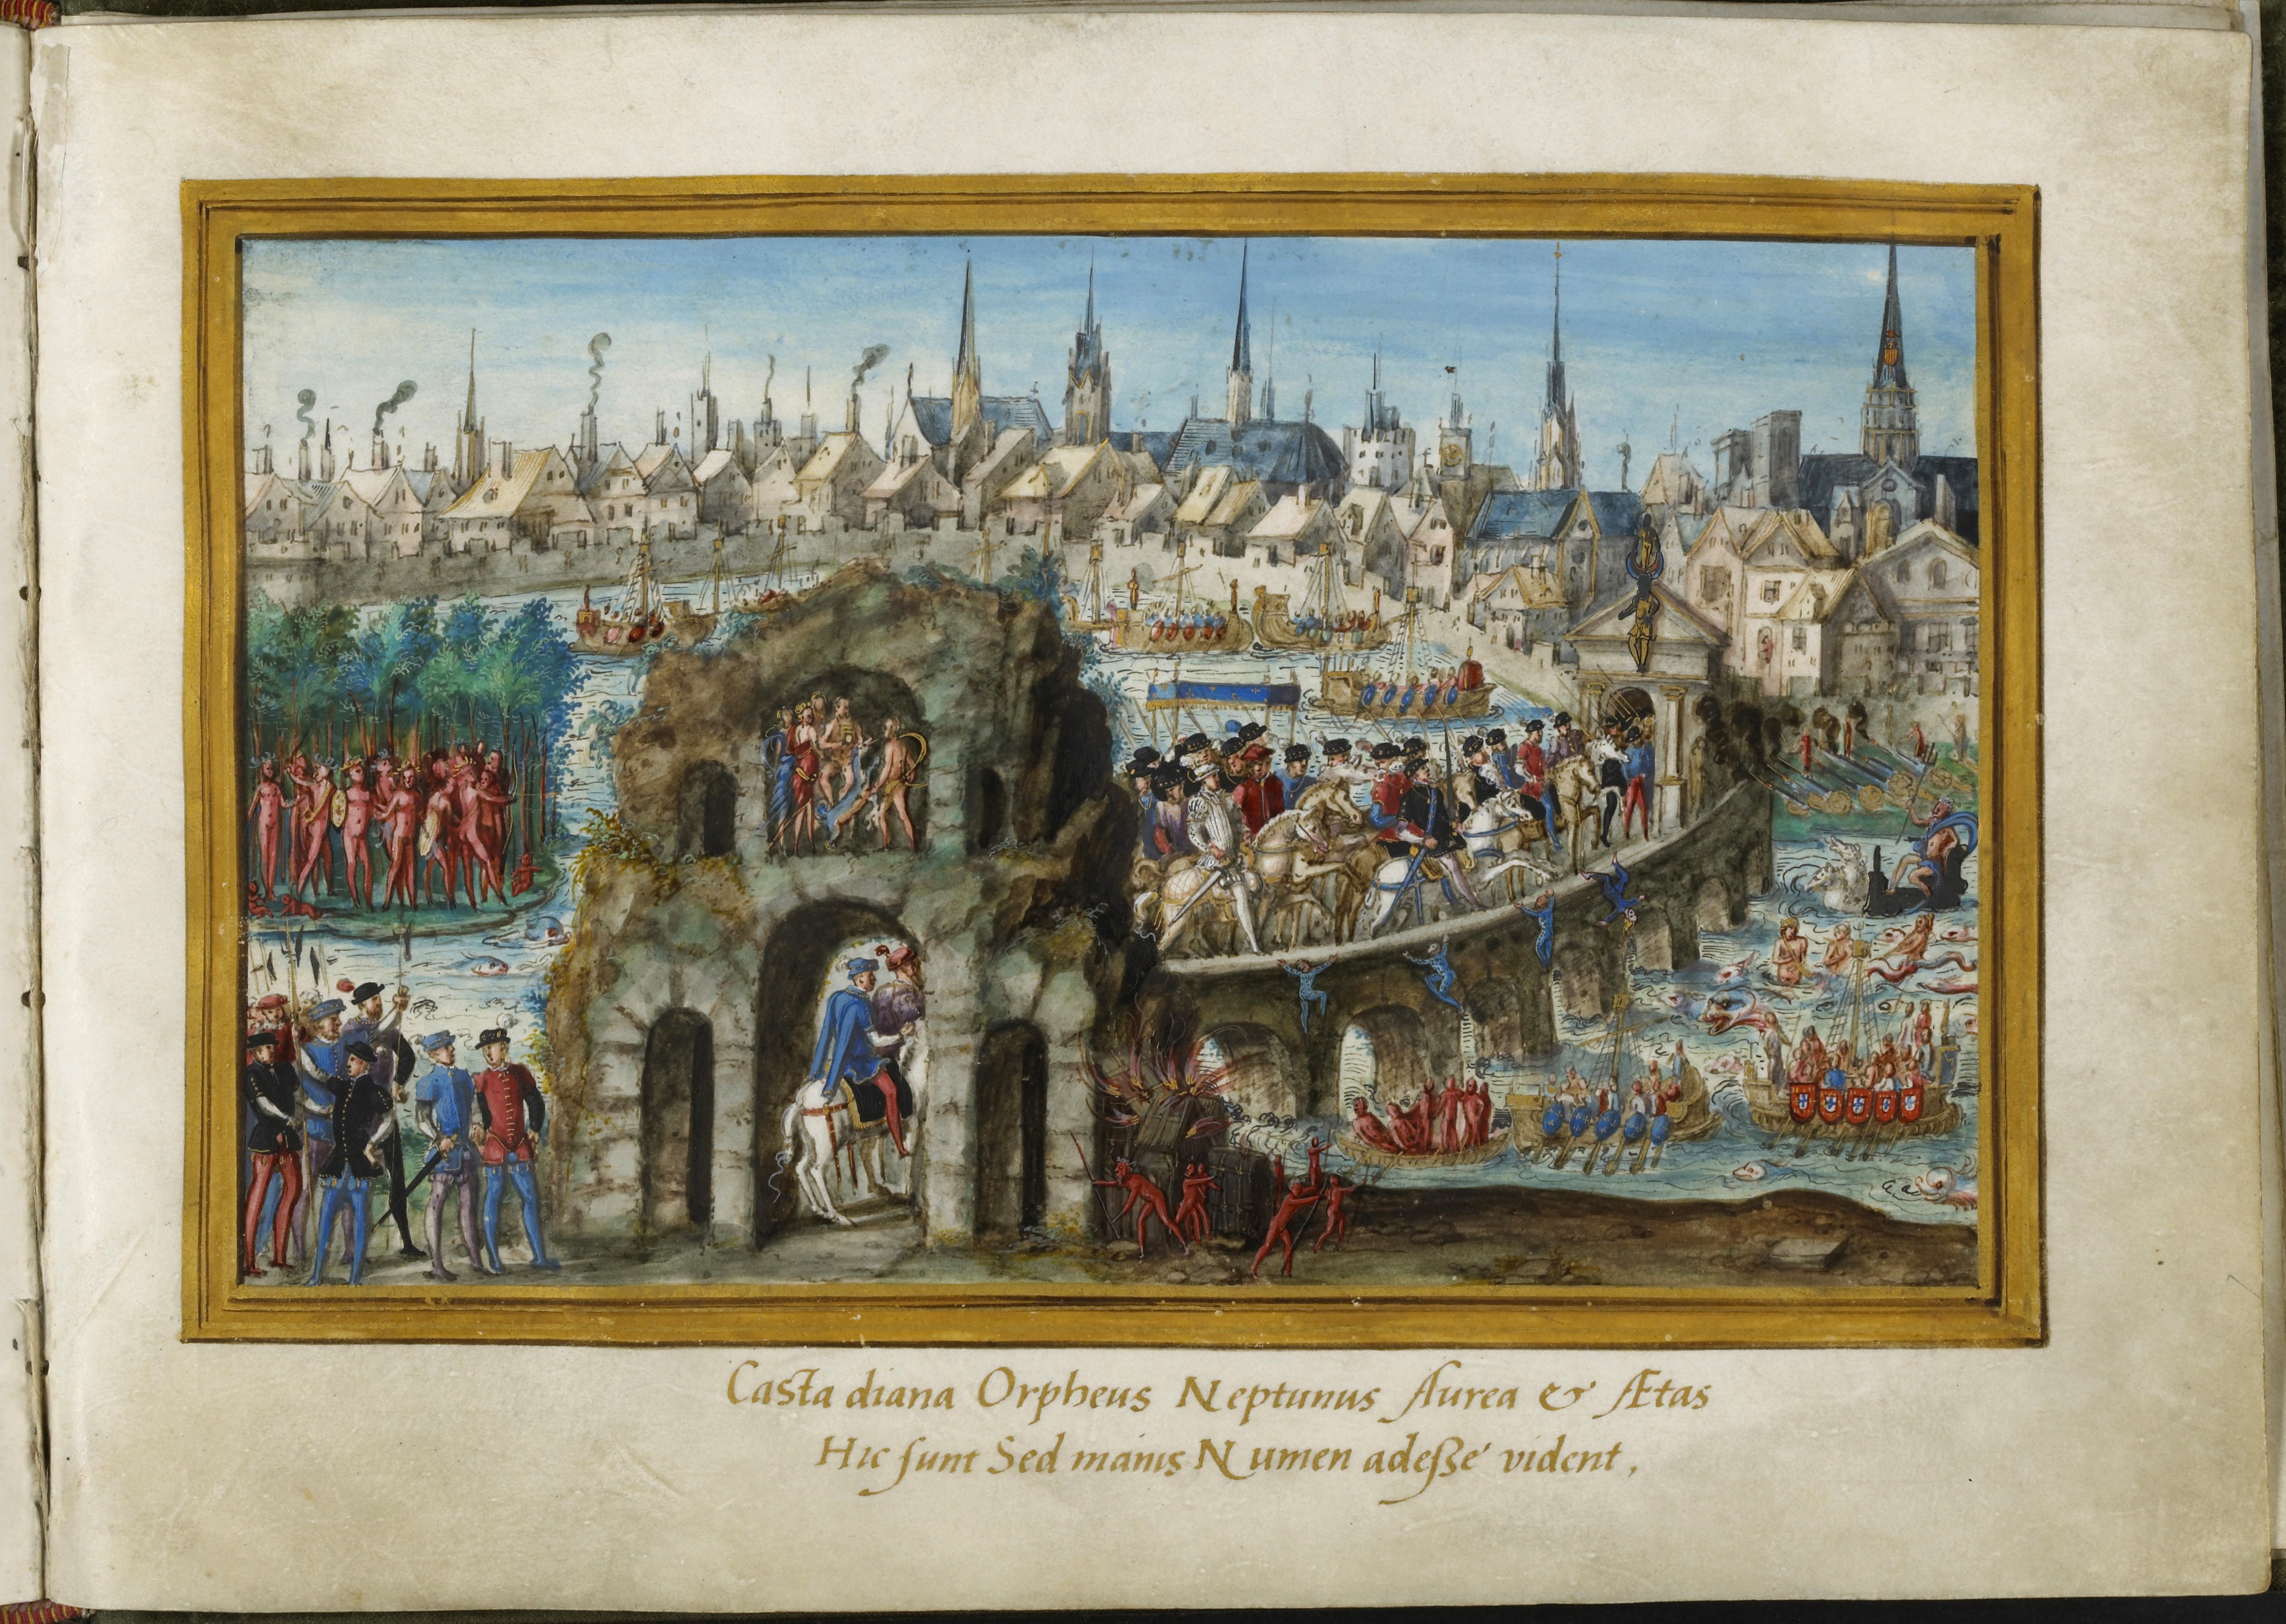 Casta diana Orpheus Neptunus Aurea & Ætas
Hic sunt Sed maius Numen adesse vident,